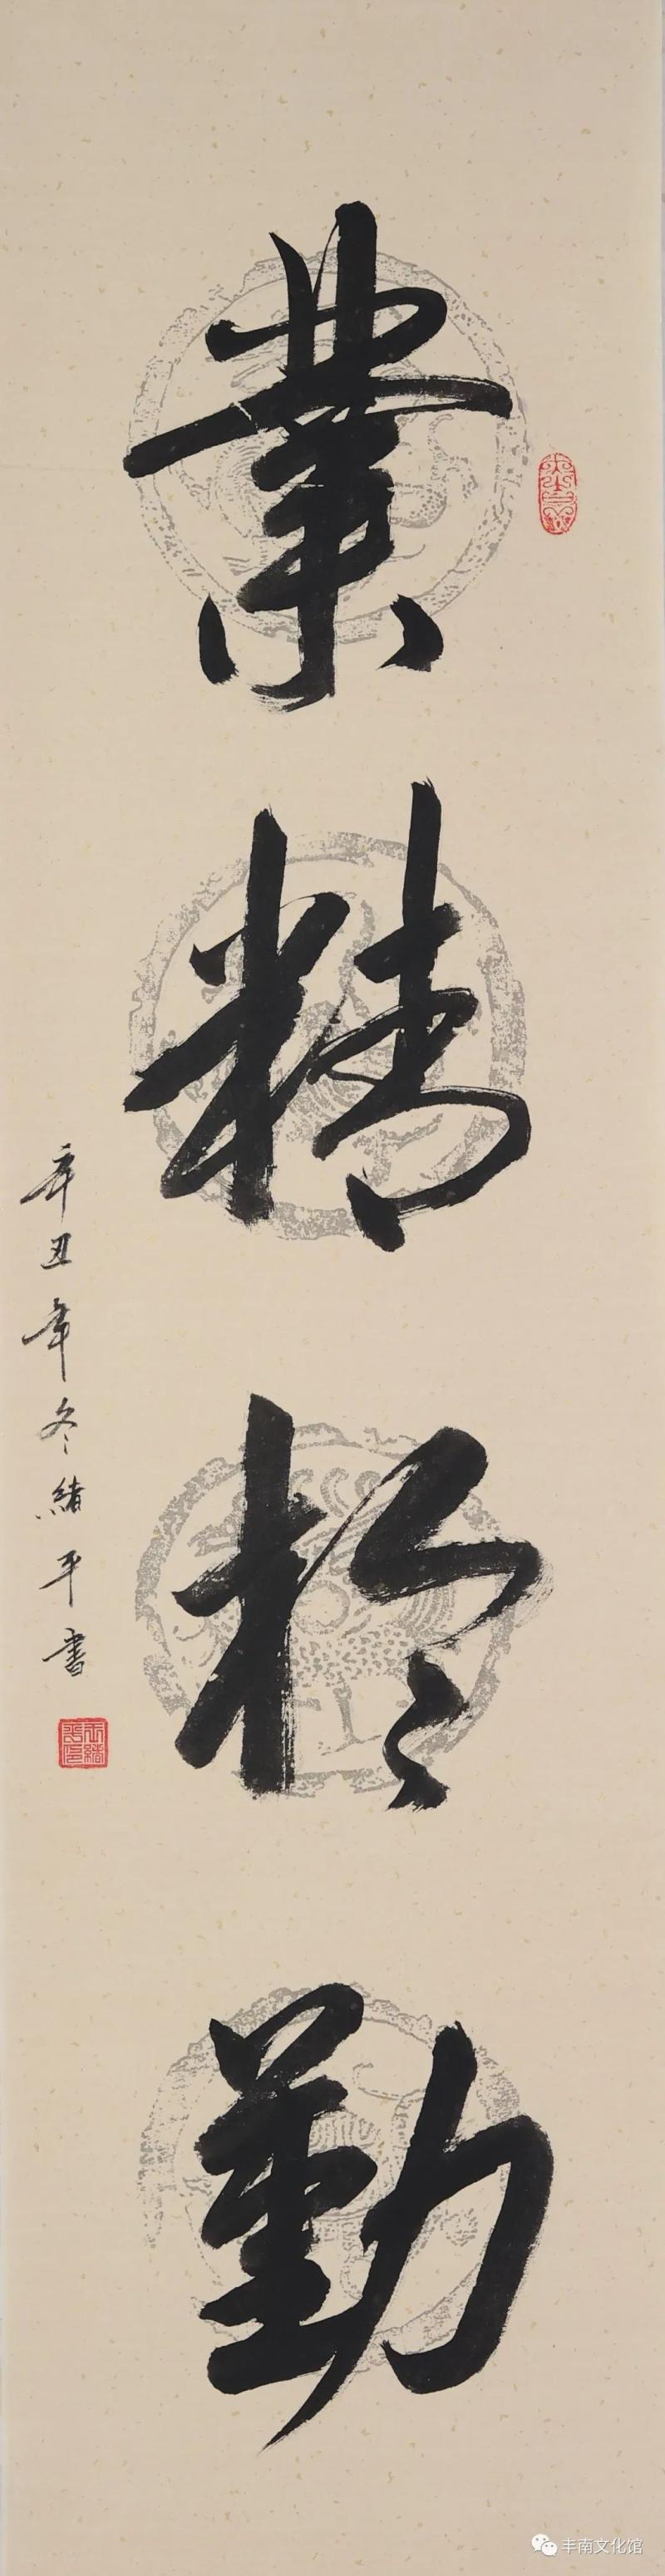 業精於勤
辛丑年冬緒平書
丰南文化馆